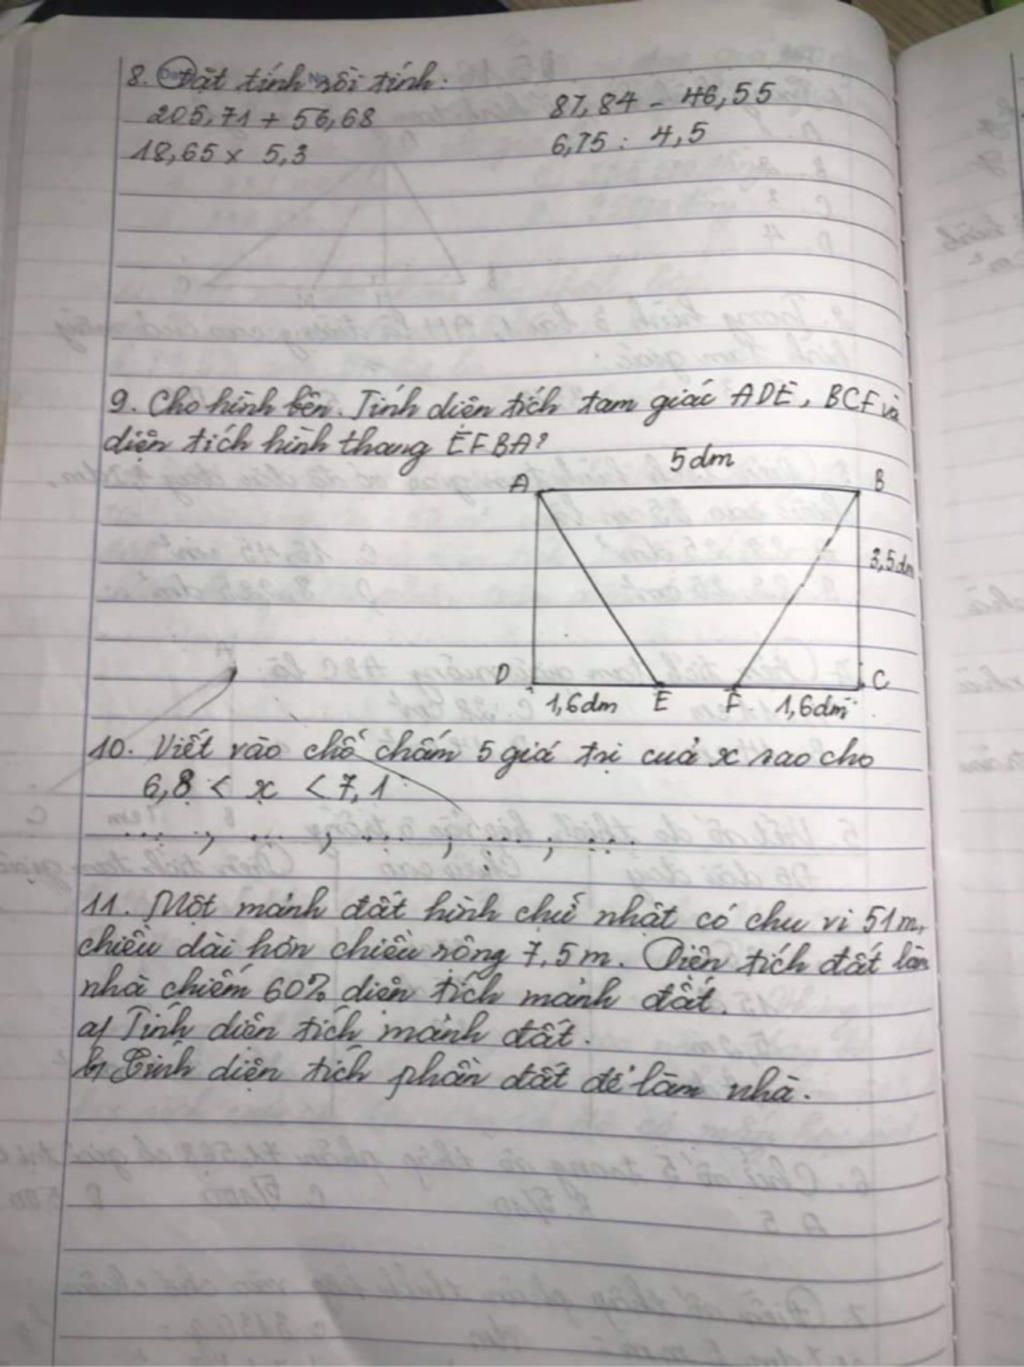 8. Đặt tính rồi tính:
205,71 + 56,68
87,84 - 46,55
18,65 x 5,3
6,75 : 4,5
9. Cho hình bên. Tính diện tích tam giác ADE, BCF và
diện tích hình thang EFBA?
5dm
A
B
3,5dm
D
C
1,6dm E F 1,6dm
10. Viết vào chỗ chấm 5 giá trị của x sao cho
6,8 < x < 7,1
.... , .... , .... , .... , ....
11. Một mảnh đất hình chữ nhật có chu vi 51m,
chiều dài hơn chiều rộng 7,5m. Diện tích đất làm
nhà chiếm 60% diện tích mảnh đất.
a) Tính diện tích mảnh đất.
b) Tính diện tích phần đất để làm nhà.